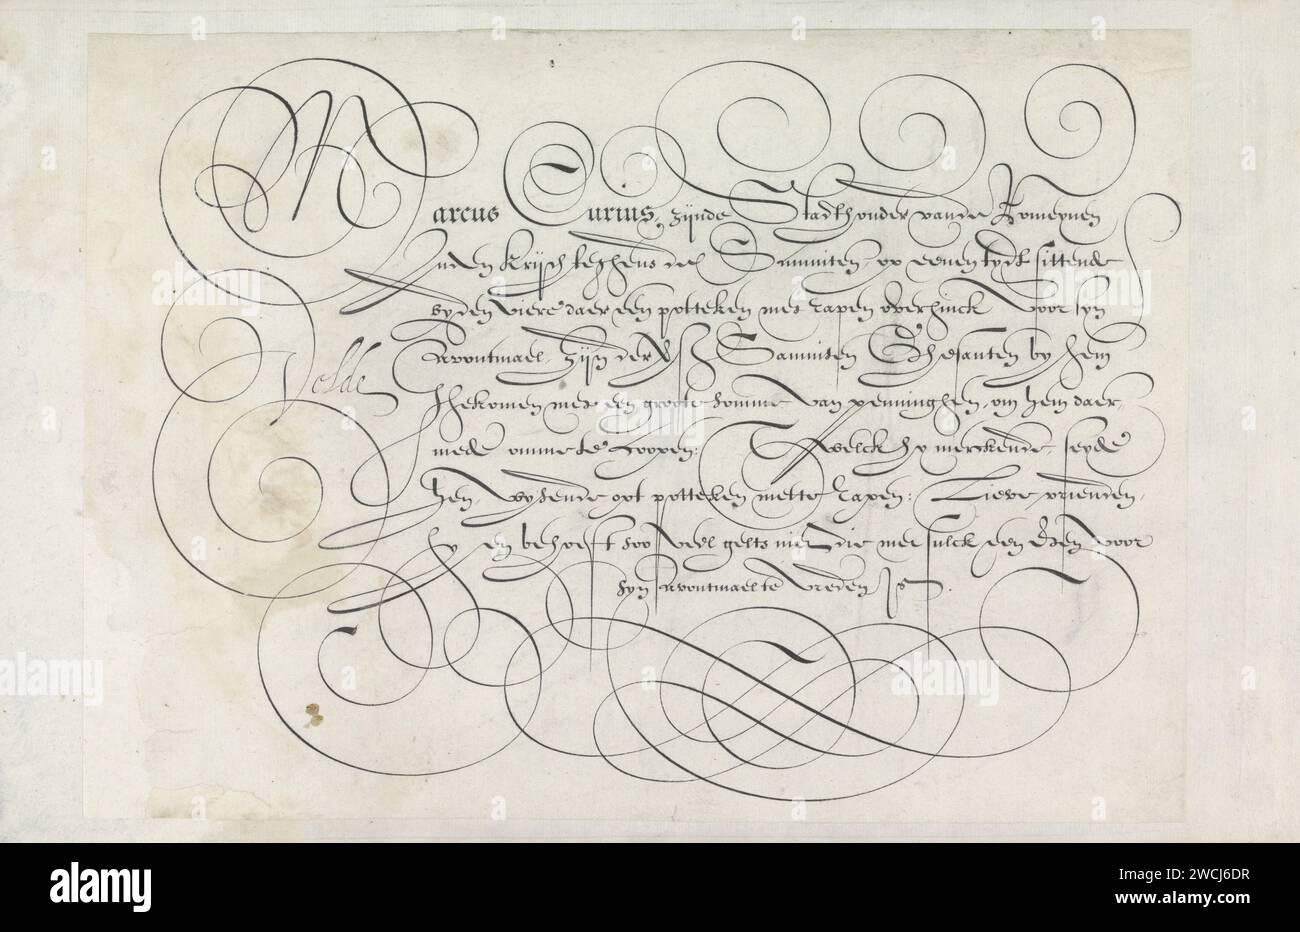 Marcus Curius, zijnde Stadthouder vande Romeynen
Inden krijch teghens des Samniten, op eenen tydt sittende
by den viere daer een potteken met rapen over hinck Voor syn
Avontmael, zijn der Samniten Ghesanten by hem
Ghekomen met een groote somme van penninghen, om hem daer
mede omme te coopen: Twelck hy merckende, seyde
hen, wysende opt potteken mette rapen: Lieve vrienden,
hy en behoeft soo veel gelts niet die met sulck een eten voor
syn avontmael te vreden is.
Velde
alamy
alamy
Image ID: 2WCJ6DR
www.alamy.com